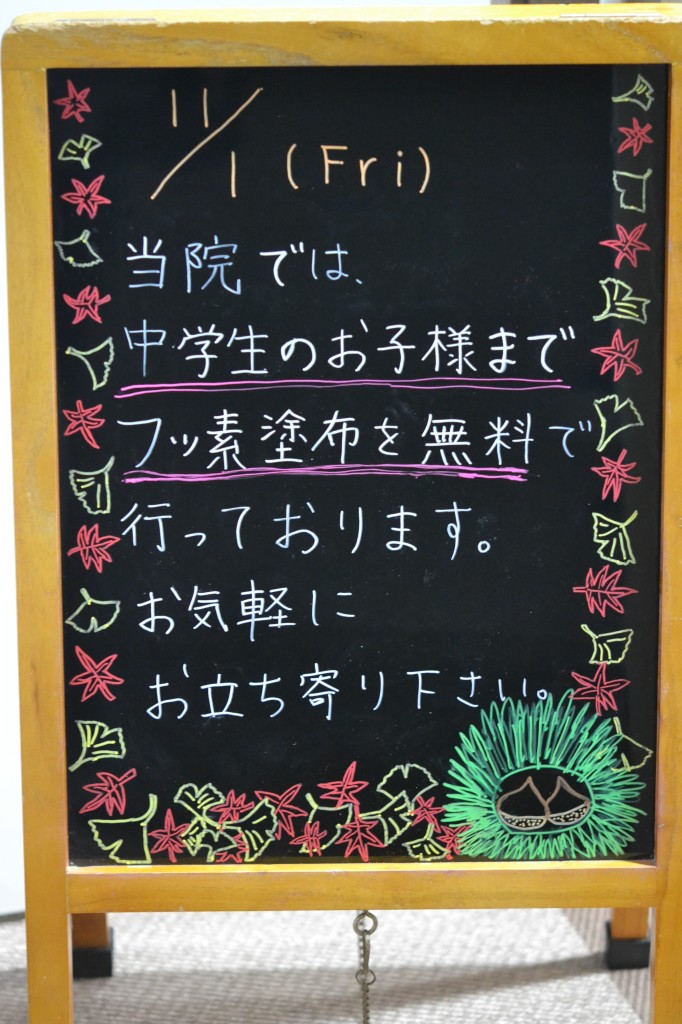 11/1 (Fri)
当院では、
中学生のお子様まで
フッ素塗布を無料で
行っております。
お気軽に
お立ち寄り下さい。